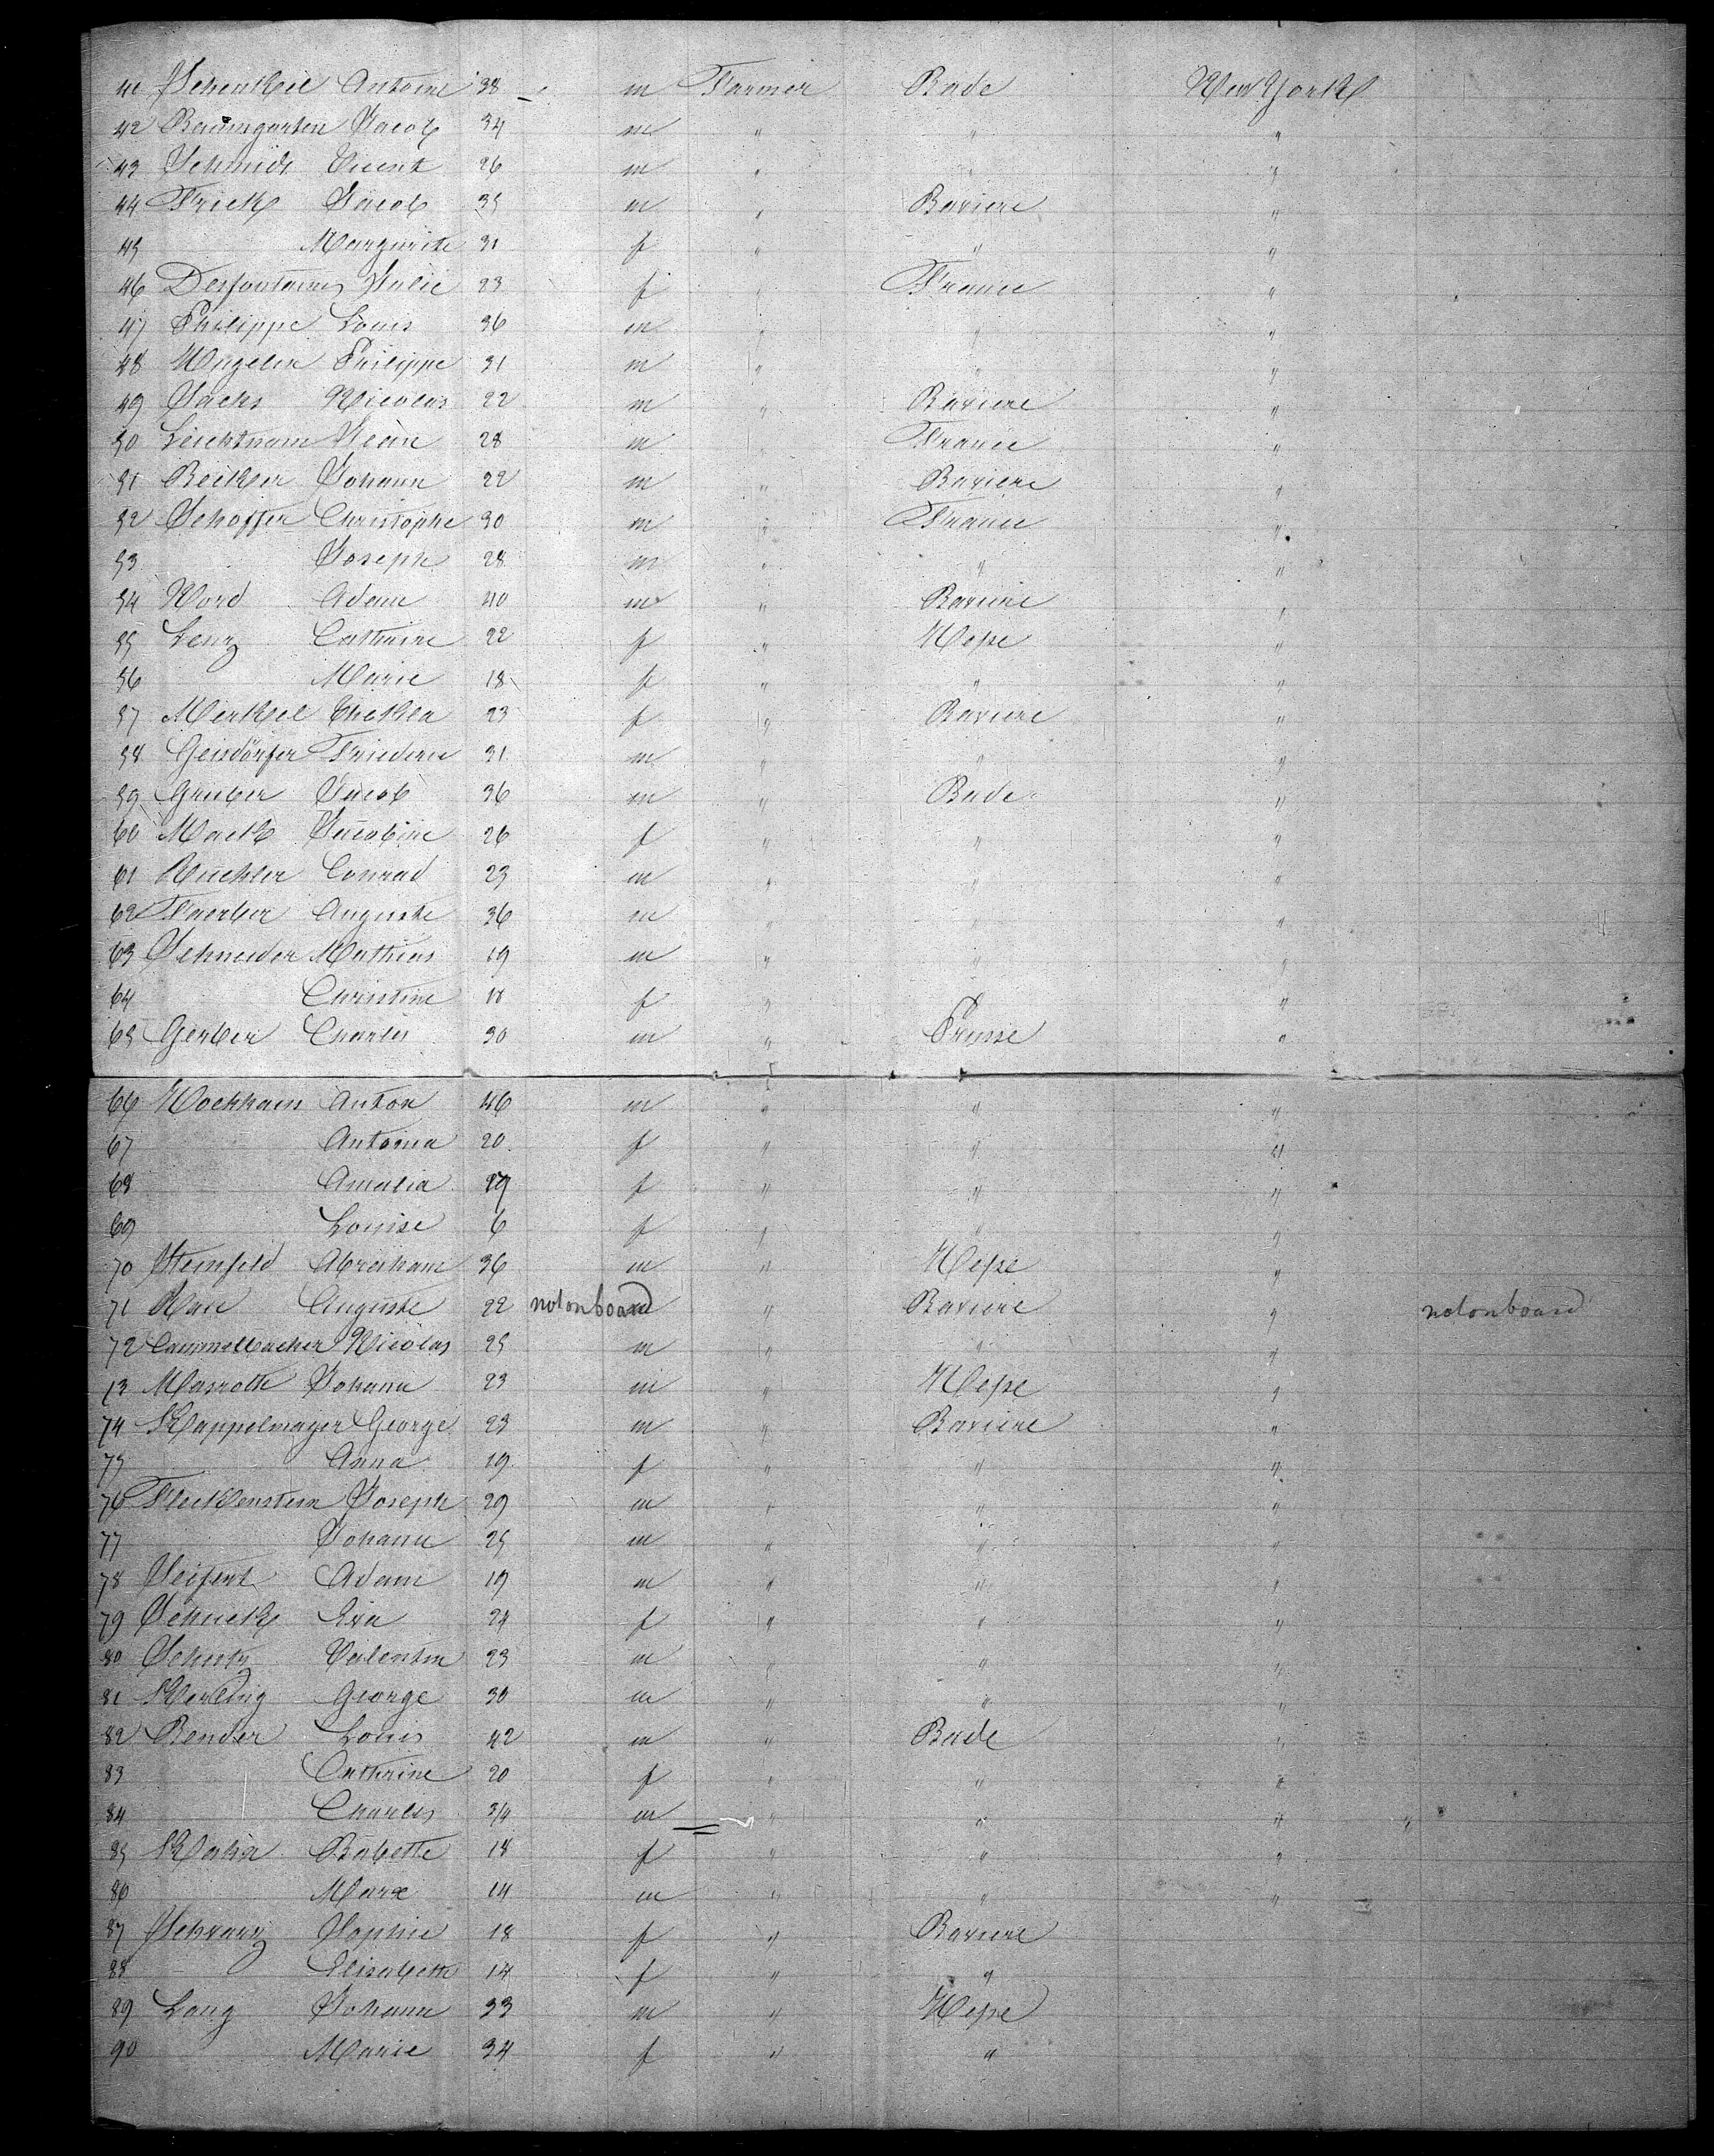 41 Schenkel Antoine 38 m Farmer Bade New York
42 Baumgarten Jacob 34 m " " "
43 Schmidt Vicent 26 m " " "
44 Frick Jacob 35 m " Baviere "
45 Margurite 31 f " " "
46 Desfontaines Julie 23 f " France "
47 Philippe Louis 36 m " " "
48 Philippe 31 m " " "
49 Sachs Nicolas 22 m " Baviere "
50 Leichtnam Jean 28 m " France "
51 Becker Johann 22 m " Baviere "
52 Schaffer Christophe 30 m " France "
53 Joseph 28 m " " "
54 Nord Adam 40 m " Baviere "
55 Lenz Cathrine 22 f " Hesse "
56 Marie 18 f " " "
57 Merkel Thekla 23 f " Baviere "
58 Geisdörfer 31 m " " "
59 Gruber Jacob 36 m " Bade "
60 Mack Jacobine 26 f " " "
61 Buchler Conrad 23 m " " "
62 Faerber Auguste 36 m " " "
63 Schneider Mathias 19 m " " "
64 Christine f " " "
65 Gerber Charles 30 m " Prusse "
66 Anton 46 m " " "
67 Antonia 20 f " " "
68 Amalia f " " "
69 Louise 6 f " " "
70 Steinfeld Abraham 36 m " Hesse "
71 Auguste 22 not on board " Baviere " not on board
72 Cammelbacher Nicolas 25 m " " "
73 Masroth Johann 23 m " Hesse "
74 Kappelmayer George 23 m " Baviere "
75 Anna 19 f " " "
76 Fleckenstein Joseph 29 m " " "
77 Johann 25 m " " "
78 Seifert Adam 19 m " " "
79 Schuck Eva 24 f " " "
80 Schutz Valentin 23 m " " "
81 Kerbig George 30 m " " "
82 Bender Louis 42 m " Bade "
83 Cathrine 20 f " " "
84 Charles 3/4 m " " " "
85 Kahn Babette 18 f " " "
86 Marx 14 m " " "
87 Schwarz Sophie 18 f " Baviere
88 Elisabeth 14 f " "
89 Lang Johann 33 m " Hesse
90 Marie 34 f " "